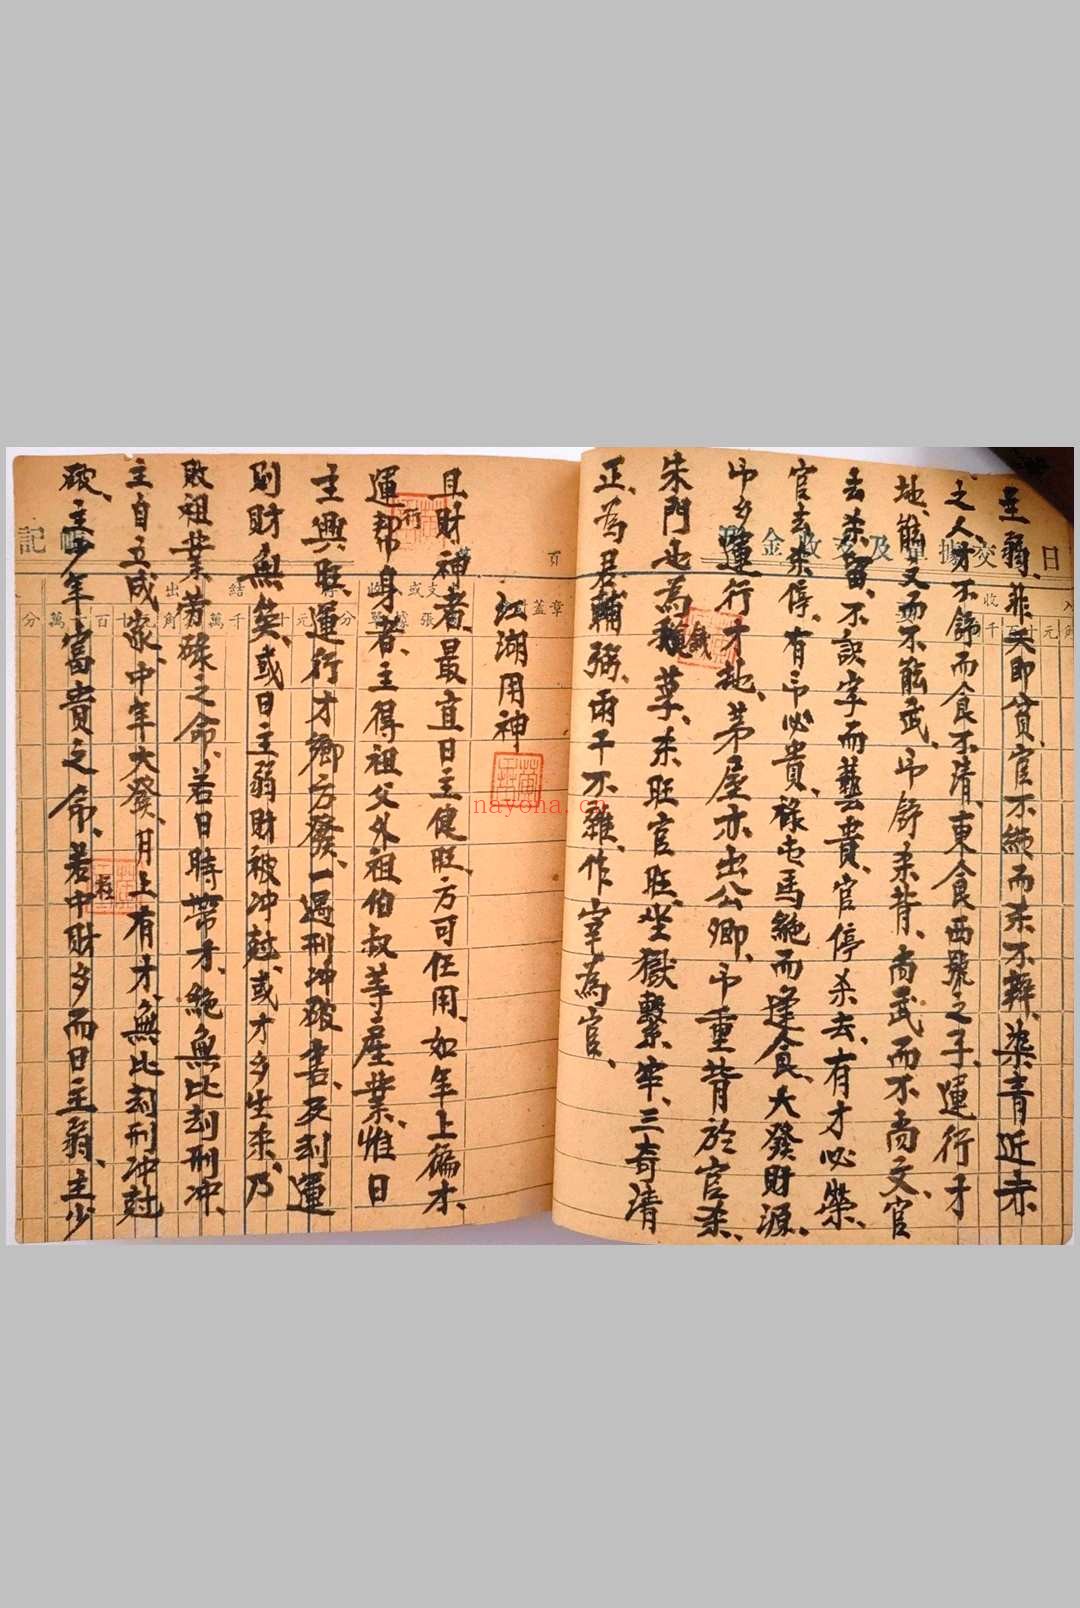 主弱、非夭即貧、官不純而杀不辨、染青近赤
之人、才不飾而食不清、東食西號之子、運行才
地、能文而不能武、卩舒杀背、尚武而不尚文、官
去杀留、不説字而藝貴、官停杀去、有才必榮、
官去杀停、有卩必貴、祿屯馬絶而逢食、大發財源、
卩多運行才地、茅屋亦出公卿、卩重背於官杀、
朱門也為餓莩、杀旺官旺、坐獄繫牢、三奇清
正、為君輔弼、兩干不雜、作宰為官、
江湖用神
且財神者、最宜日主健旺、方可任用、如年上徧才、
運帮身者、主得祖父外祖伯叔等産業、惟日
主興旺、運行才鄉方發、一遇刑冲破害、及刦運
則財無矣、或日主弱財被冲尅、或才多生杀、乃
敗祖業劳碌之命、若日時帶才、絶無比刦刑冲、
主自立成家、中年大發、月上有才、無比刦刑冲尅
破、主少年富貴之命、若中財多而日主弱、主少
日
交據單及支收金
頁
記
章蓋
支或收
張據單
結
出
分
角
元
十
百
千
萬
nayona.cn